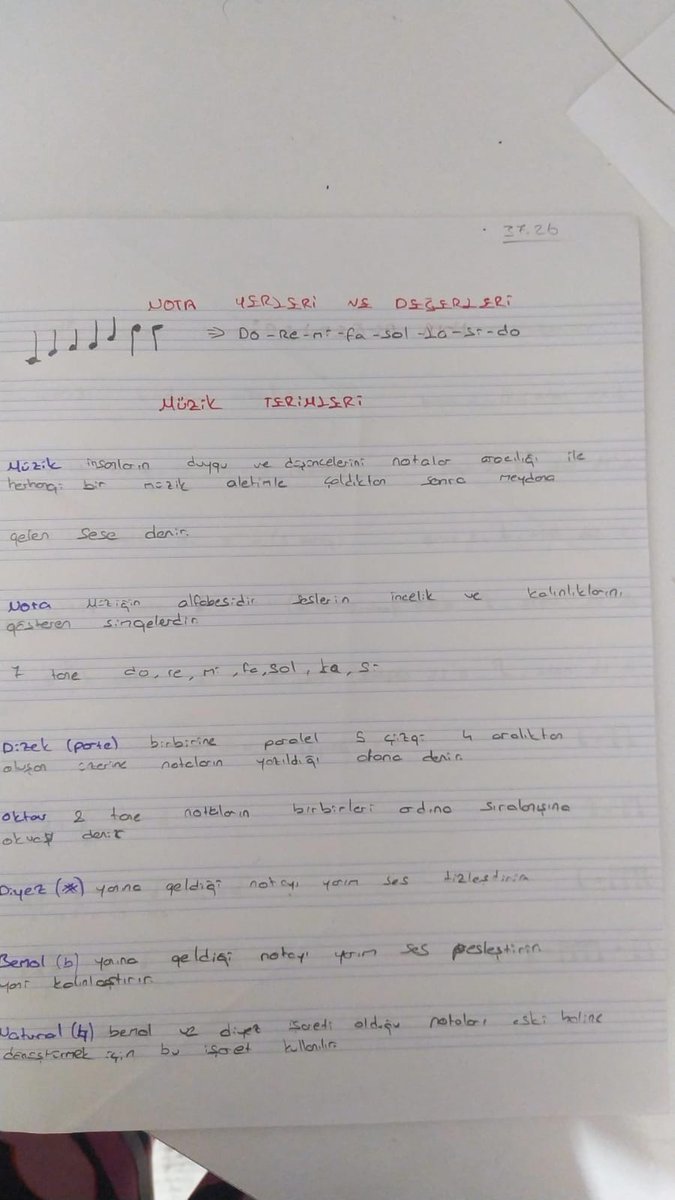 37.26
NOTA YERLERi VE DEĞERLERi
⇒ Do-Re-mi-fa-sol-la-si-do
MÜZiK TERiMLERi
Müzik insanların duygu ve düşüncelerini notalar aracılığı ile
herhangi bir müzik aletinle çaldıktan sonra meydana
gelen sese denir.
Nota Müziğin alfabesidir seslerin incelik ve kalınlıklarını
gösteren simgelerdir
7 tane do, re, mi, fa, sol, la, si
Dizek (porte) birbirine paralel 5 çizgi 4 aralıktan
oluşan üzerine notaların yazıldığı alana denir.
Oktav 8 tane notaların birbirleri ardına sıralanışına
denir
Diyez (#) yanına geldiği notayı yarım ses tizleştirir
Bemol (b) yanına geldiği notayı yarım ses pesleştirir
yani kalınlaştırır
Natural (♮) bemol ve diyez işareti olduğu notaları eski haline
için bu işaret kullanılır